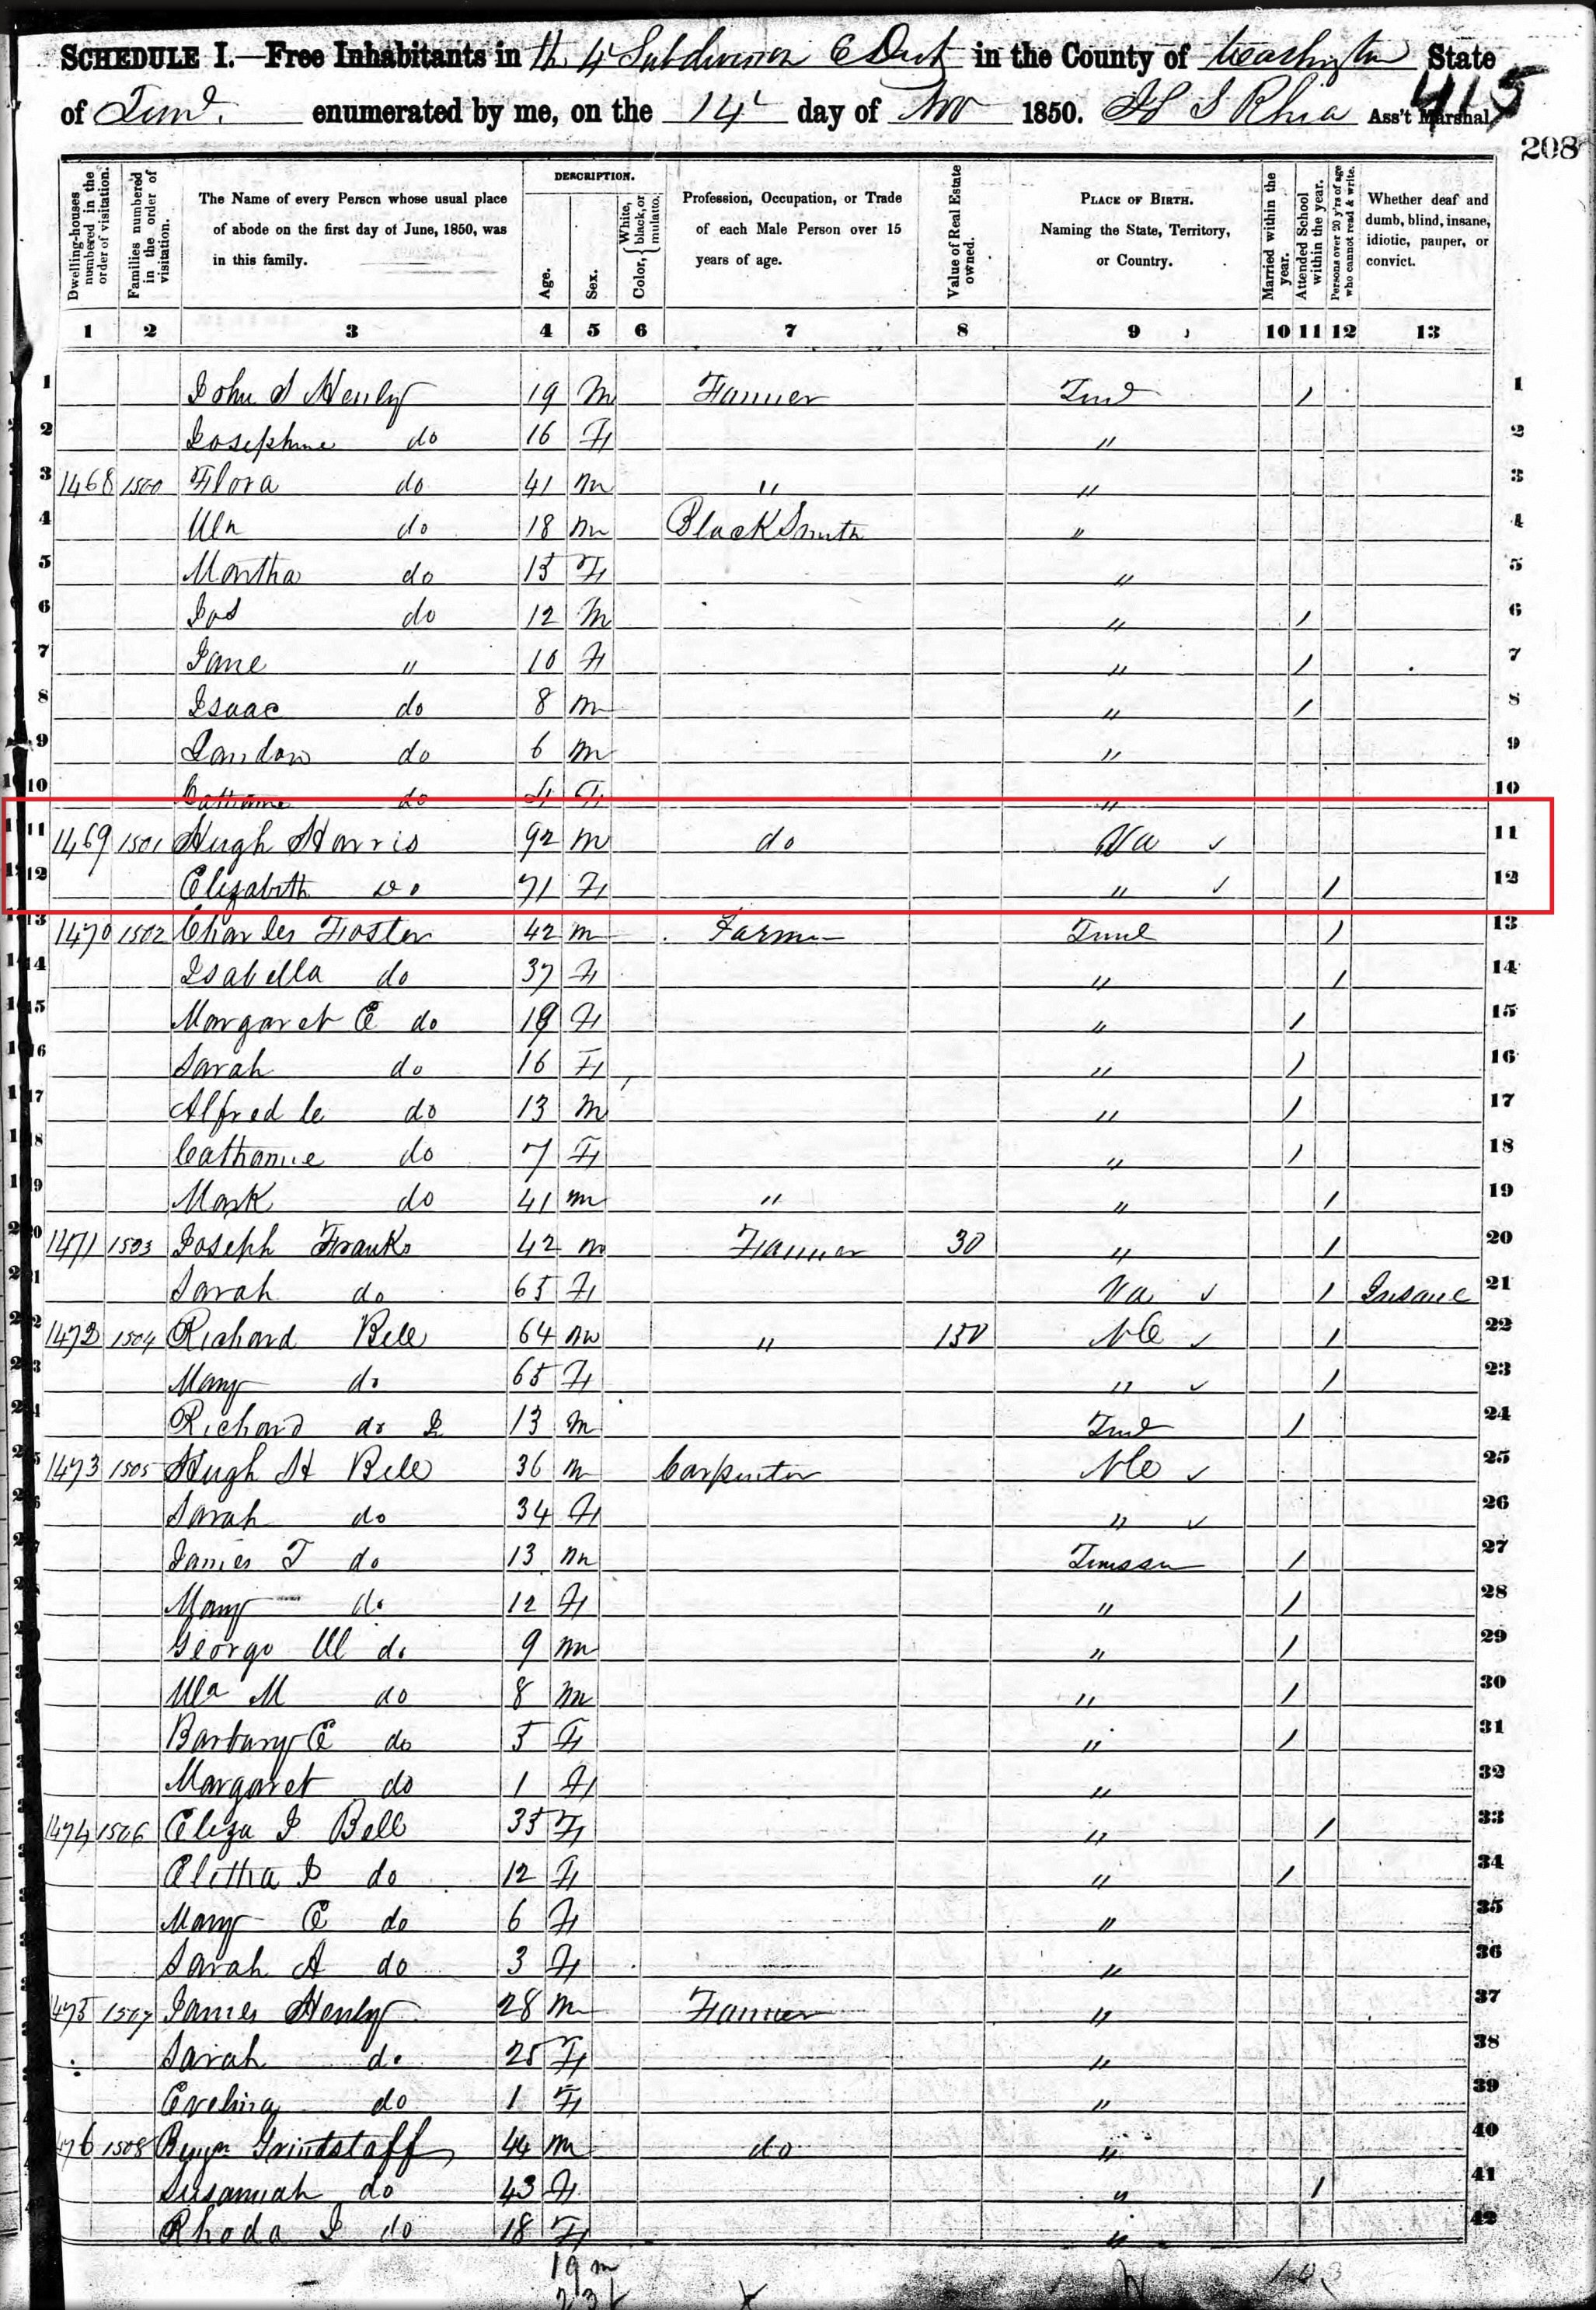 SCHEDULE I.—Free Inhabitants in th 4 Subdivision E Dist in the County of Washington State
of Tenn. enumerated by me, on the 14 day of Nov 1850. S Rhea Ass't Marshal.
415
208
Dwelling-houses numbered in the order of visitation.
Families numbered in the order of visitation.
The Name of every Person whose usual place of abode on the first day of June, 1850, was in this family.
DESCRIPTION.
Age.
Sex.
Color, White, black, or mulatto.
Profession, Occupation, or Trade of each Male Person over 15 years of age.
Value of Real Estate owned.
PLACE OF BIRTH. Naming the State, Territory, or Country.
Married within the year.
Attended School within the year.
Persons over 20 y'rs of age who cannot read & write.
Whether deaf and dumb, blind, insane, idiotic, pauper, or convict.
1 2 3 4 5 6 7 8 9 10 11 12 13
1 John S Henly 19 M Farmer Tend / 1
2 Josephine do 16 F " 2
3 1468 1500 Flora do 41 m " " 3
4 Wm do 18 m BlackSmith " 4
5 Martha do 15 F " 5
6 Jos do 12 M " / 6
7 Jane " 10 F " / 7
8 Isaac do 8 m " / 8
9 Landon do 6 m " 9
10 Catharine do 4 F " 10
11 1469 1501 Hugh Harris 92 m do Va ✓ 11
12 Elizabeth do 71 F " ✓ / 12
13 1470 1502 Charles Foster 42 m Farmer Tenn / 13
14 Isabella do 37 F " / 14
15 Margaret E do 18 F " / 15
16 Sarah do 16 F " / 16
17 Alfred C do 13 M " / 17
18 Catharine do 7 F " / 18
19 Mark do 41 m " " / 19
20 1471 1503 Joseph Franks 42 m Farmer 30 " / 20
21 Sarah do 65 F Va ✓ / Insane 21
22 1472 1504 Richard Bell 64 m " 150 NC ✓ / 22
23 Mary do 65 F " ✓ / 23
24 Richard do J 13 M Tend / 24
25 1473 1505 Hugh H Bell 36 m Carpenter NC ✓ 25
26 Sarah do 34 F " ✓ 26
27 James T do 13 m Tennssee / 27
28 Mary do 12 F " / 28
29 George W do 9 m " / 29
30 Wm M do 8 m " / 30
31 Barbary E do 5 F " / 31
32 Margaret do 1 F " 32
33 1474 1506 Eliza J Bell 35 F " / 33
34 Alitha J do 12 F " / 34
35 Mary E do 6 F " 35
36 Sarah A do 3 F " 36
37 475 1507 James Henly 28 m Farmer " 37
38 Sarah do 25 F " 38
39 Evelina do 1 F " 39
40 476 1508 Benjn Grindstaff 44 m do " 40
41 Susannah do 43 F " / 41
42 Rhoda J do 18 F " 42
19 m
23 f